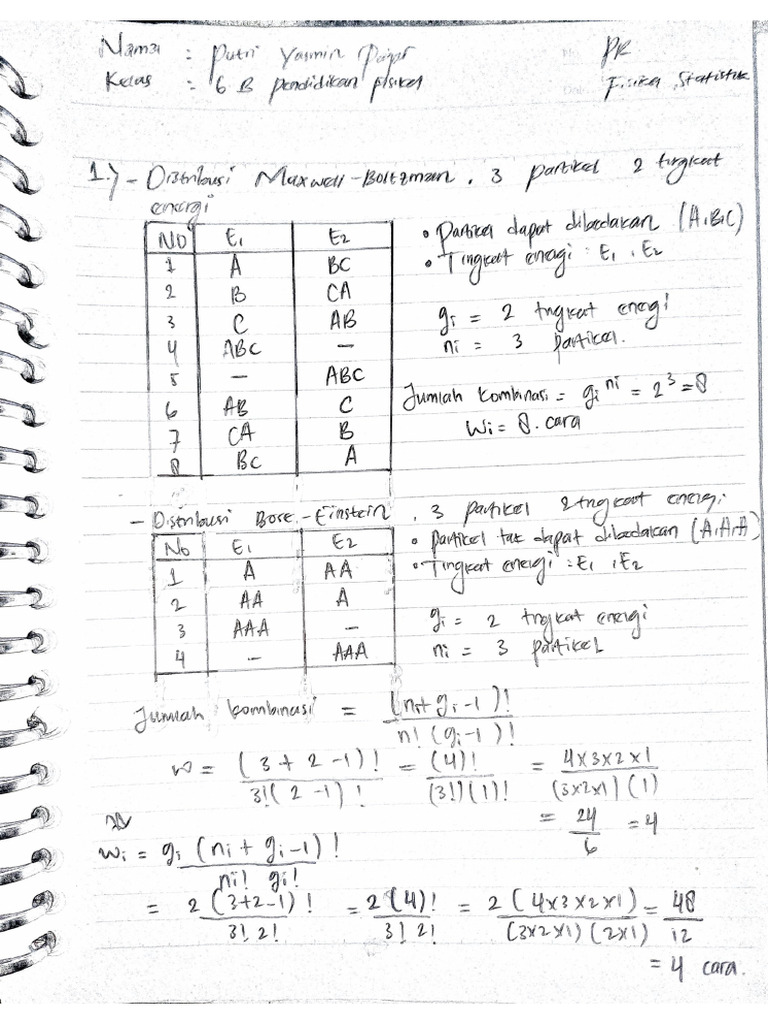 Nama : Putri Yasmin
PR
Kelas : 6 B pendidikan fisika
Fisika Statistik
1.) - Distribusi Maxwell-Boltzman . 3 partikel 2 tingkat
energi
NO E1 E2
1 A BC
2 B CA
3 C AB
4 ABC -
5 - ABC
6 AB C
7 CA B
8 BC A
• Partikel dapat dibedakan (A,B,C)
• Tingkat energi : E1 , E2
gi = 2 tngkat energi
ni = 3 partikel.
Jumlah kombinasi = gi^ni = 2^3 = 8
Wi = 8 . cara
- Distribusi Bose-Einstein . 3 partikel 2 tngkat energi
No E1 E2
1 A AA
2 AA A
3 AAA -
4 - AAA
• partikel tak dapat dibedakan (A,A,A)
• Tingkat energi : E1 , E2
gi = 2 tngkat energi
ni = 3 partikel
Jumlah kombinasi = (ni+gi-1)! / n! (gi-1)!
W = (3+2-1)! / 3!(2-1)! = (4)! / (3!)(1)! = 4×3×2×1 / (3×2×1)(1)
= 24/6 = 4
Wi = gi (ni + gi-1)! / ni! gi!
= 2 (3+2-1)! / 3! 2! = 2(4)! / 3! 2! = 2(4×3×2×1) / (3×2×1)(2×1) = 48/12
= 4 cara.